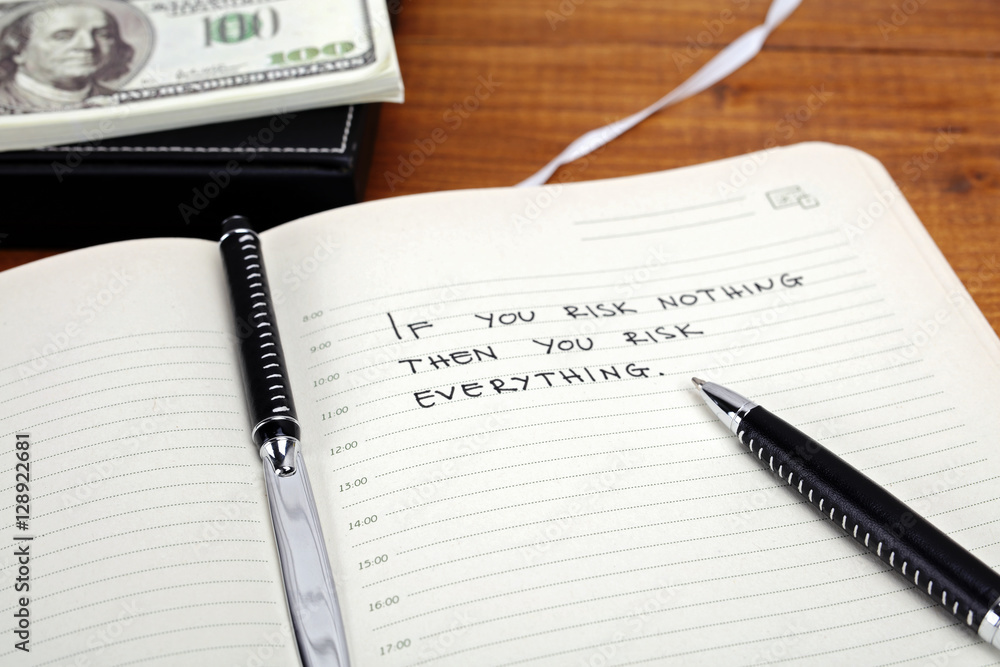 100
100
DOLLARS
8:00
IF YOU RISK NOTHING
9:00
THEN YOU RISK
10:00
EVERYTHING.
11:00
12:00
13:00
14:00
15:00
16:00
17:00
Adobe Stock | #128922681